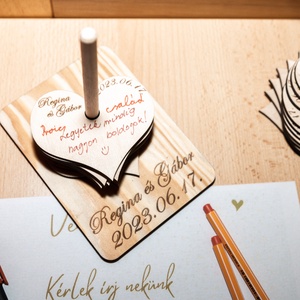 2023.06.17.
Regina
& Gábor
család
legyetek mindig
nagyon boldogok!
Regina és Gábor
2023.06.17.
Ve
Kérlek írj nekünk